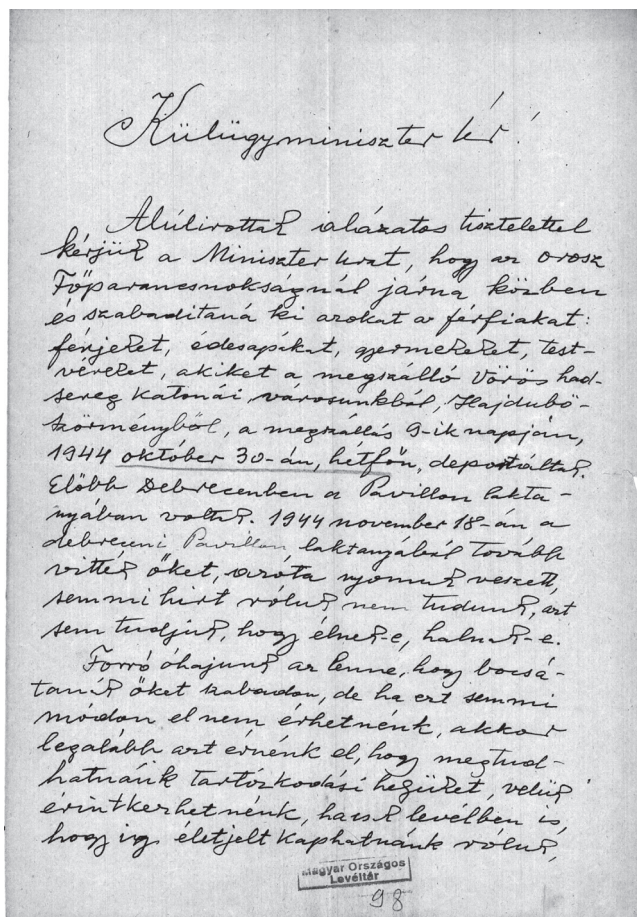 Külügyminiszter Úr!
Alúlirottak alázatos tisztelettel
kérjük a Miniszter Urat, hogy az orosz
Főparancsnokságnál járna közben
és szabaditaná ki azokat a férfiakat:
férjeket, édesapákat, gyermekeket, test-
véreket, akiket a megszálló Vörös had-
sereg katonái városunkból, Hajdubö-
szörményből, a megszállás 9-ik napján,
1944 október 30-án, hétfőn, deportáltak.
Előbb Debrecenben a Pavillon lakta-
nyában voltak. 1944 november 18-án a
debreceni Pavillon laktanyából tovább
vitték őket, azóta nyomuk veszett,
semmi hirt róluk nem tudunk, azt
sem tudjuk, hogy élnek-e, halnak-e.
Forró óhajunk az lenne, hogy bocsá-
tanák őket szabadon, de ha ezt semmi
módon el nem érhetnénk, akkor
legalább azt érnénk el, hogy megtud-
hatnánk tartózkodási helyüket, velük
érintkezhetnénk, hacsak levélben is,
hogy igy életjelt kaphatnánk róluk,
Magyar Országos
Levéltár
98